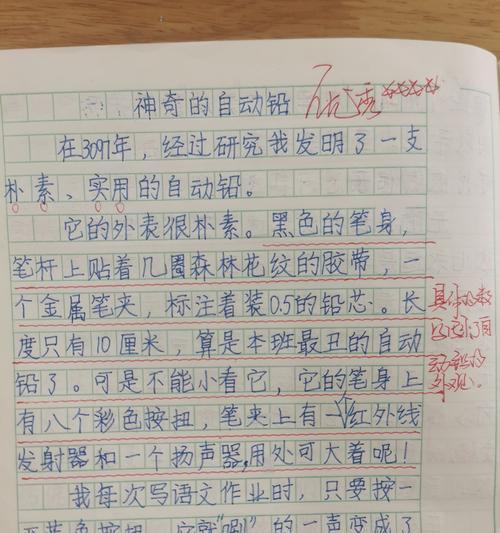 神奇的自动铅 优秀
在3097年，经过研究我发明了一支
朴素、实用的自动铅。
它的外表很朴素。黑色的笔身，
笔杆上贴着几圈森林花纹的胶带，一
个金属笔夹，标注着装0.5的铅芯。长
度只有10厘米，算是本班最丑的自动
铅了。可是不能小看它，它的笔身上
有八个彩色按扭，笔夹上有一红外线
发射器和一个扬声器,用处可大着呢！
具体的数
动铅的
外观。
我每次写语文作业时，只要按一
蓝色按扭，它就"唰"的一声变成了